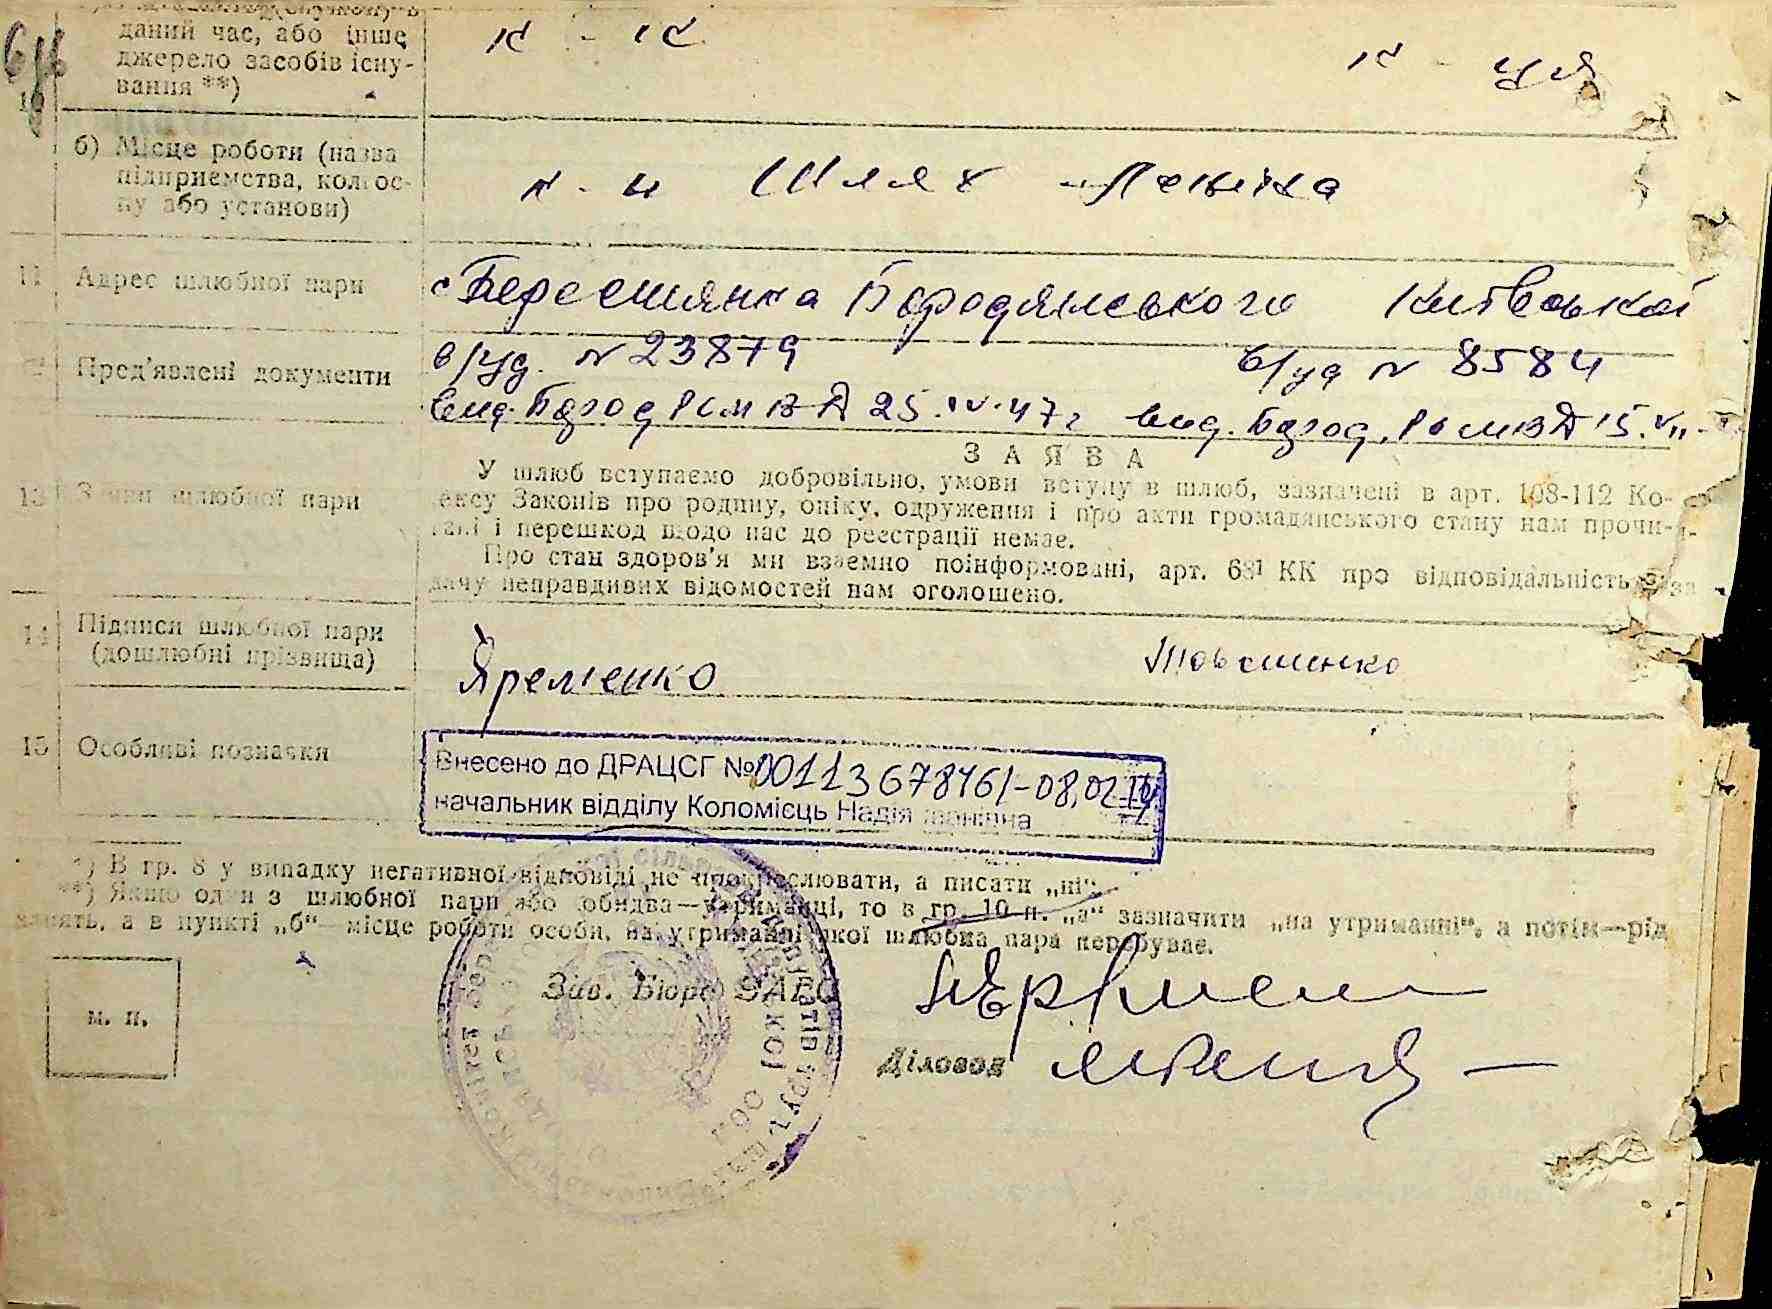 даний час, або інше
джерело засобів існу-
вання **)
к - к
10
б) Місце роботи (назва
підприємства, колгос-
пу або установи)
к - п Шлях Леніна
11 Адрес шлюбної пари с Берестянка Бородянського Київської
Пред'явлені документи в/уд. № 23879 в/уд № 8584
вид. Бород РОМВД 25.IV.47 г вид. Бород. РОМВД 15.VII.
ЗАЯВА
13 Заяви шлюбної пари
У шлюб вступаємо добровільно, умови вступу в шлюб, зазначені в арт. 108-112 Ко-
ексу Законів про родину, опіку, одруження і про акти громадянського стану нам прочи-
тані і перешкод щодо нас до реєстрації немає.
Про стан здоров'я ми взаємно поінформовані, арт. КК про відповідальність за
дачу неправдивих відомостей нам оголошено.
14 Підписи шлюбної пари
(дошлюбні прізвища)
Яременко
15 Особливі позначки
Внесено до ДРАЦСГ №00113678461-08,02
начальник відділу Коломієць Надія
*) В гр. 8 у випадку негативної відповіді не прокреслювати, а писати „ні“.
**) Якщо один з шлюбної пари або обидва—утриманці, то в гр. 10 п. „а“ зазначити „на утриманні“, а потім—рід
занять, а в пункті „б“—місце роботи особи, на утриманні якої шлюбна пара перебуває.
м. п.
Зав. Бюро ЗАГС
Діловод